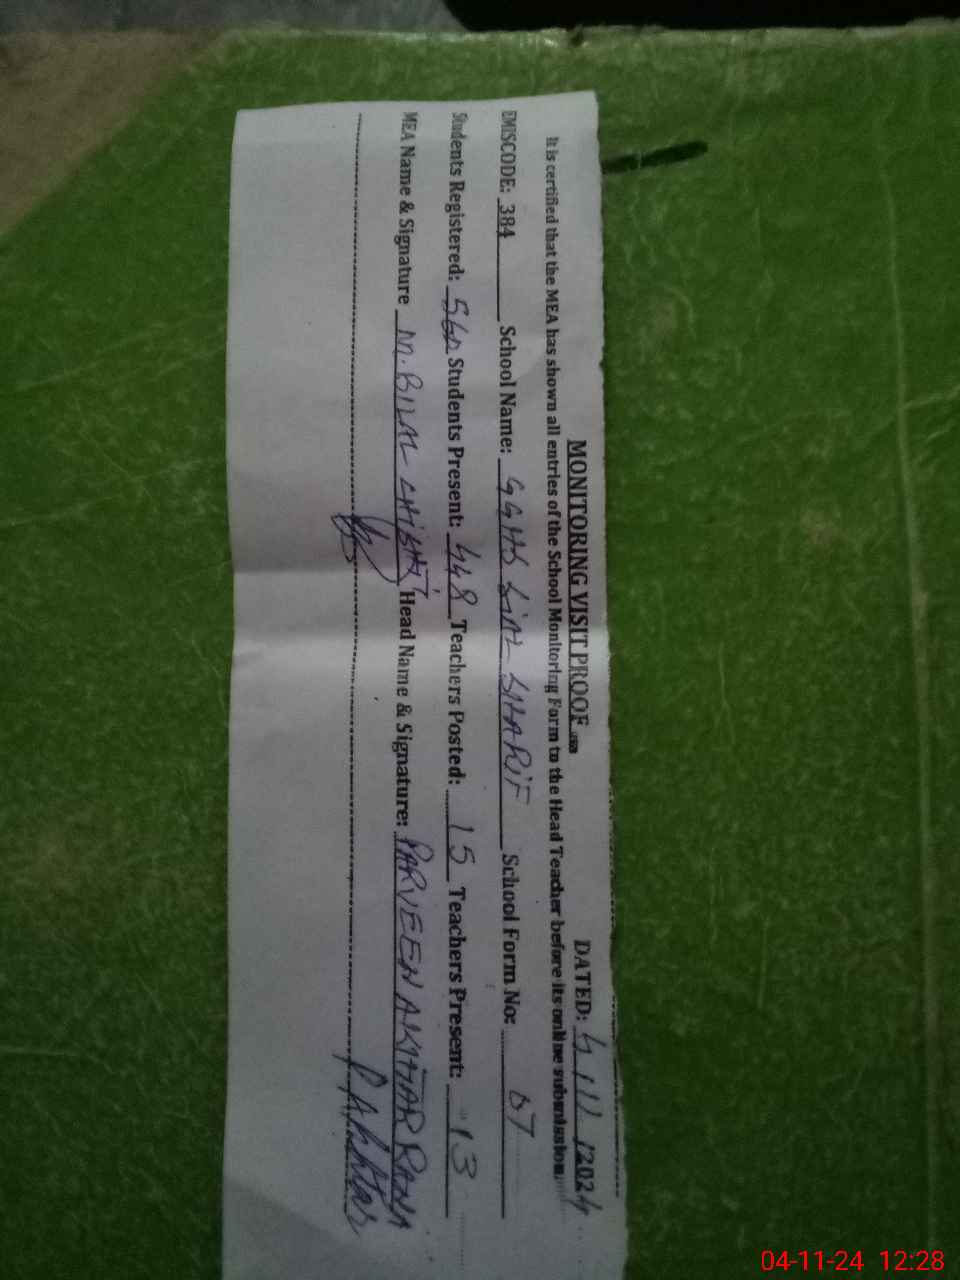 MONITORING VISIT PROOF DATED: 4/11/2024
It is certified that the MEA has shown all entries of the School Monitoring Form to the Head Teacher before its online submission.
EMISCODE: 384 School Name: GGHS SIAL SHARIF School Form No: 07
Students Registered: Students Present: 448 Teachers Posted: 15 Teachers Present: 13
MEA Name & Signature M. BILAL CHISHTI Head Name & Signature: PARVEEN AKHTAR RANA
P. Akhtar
04-11-24 12:28